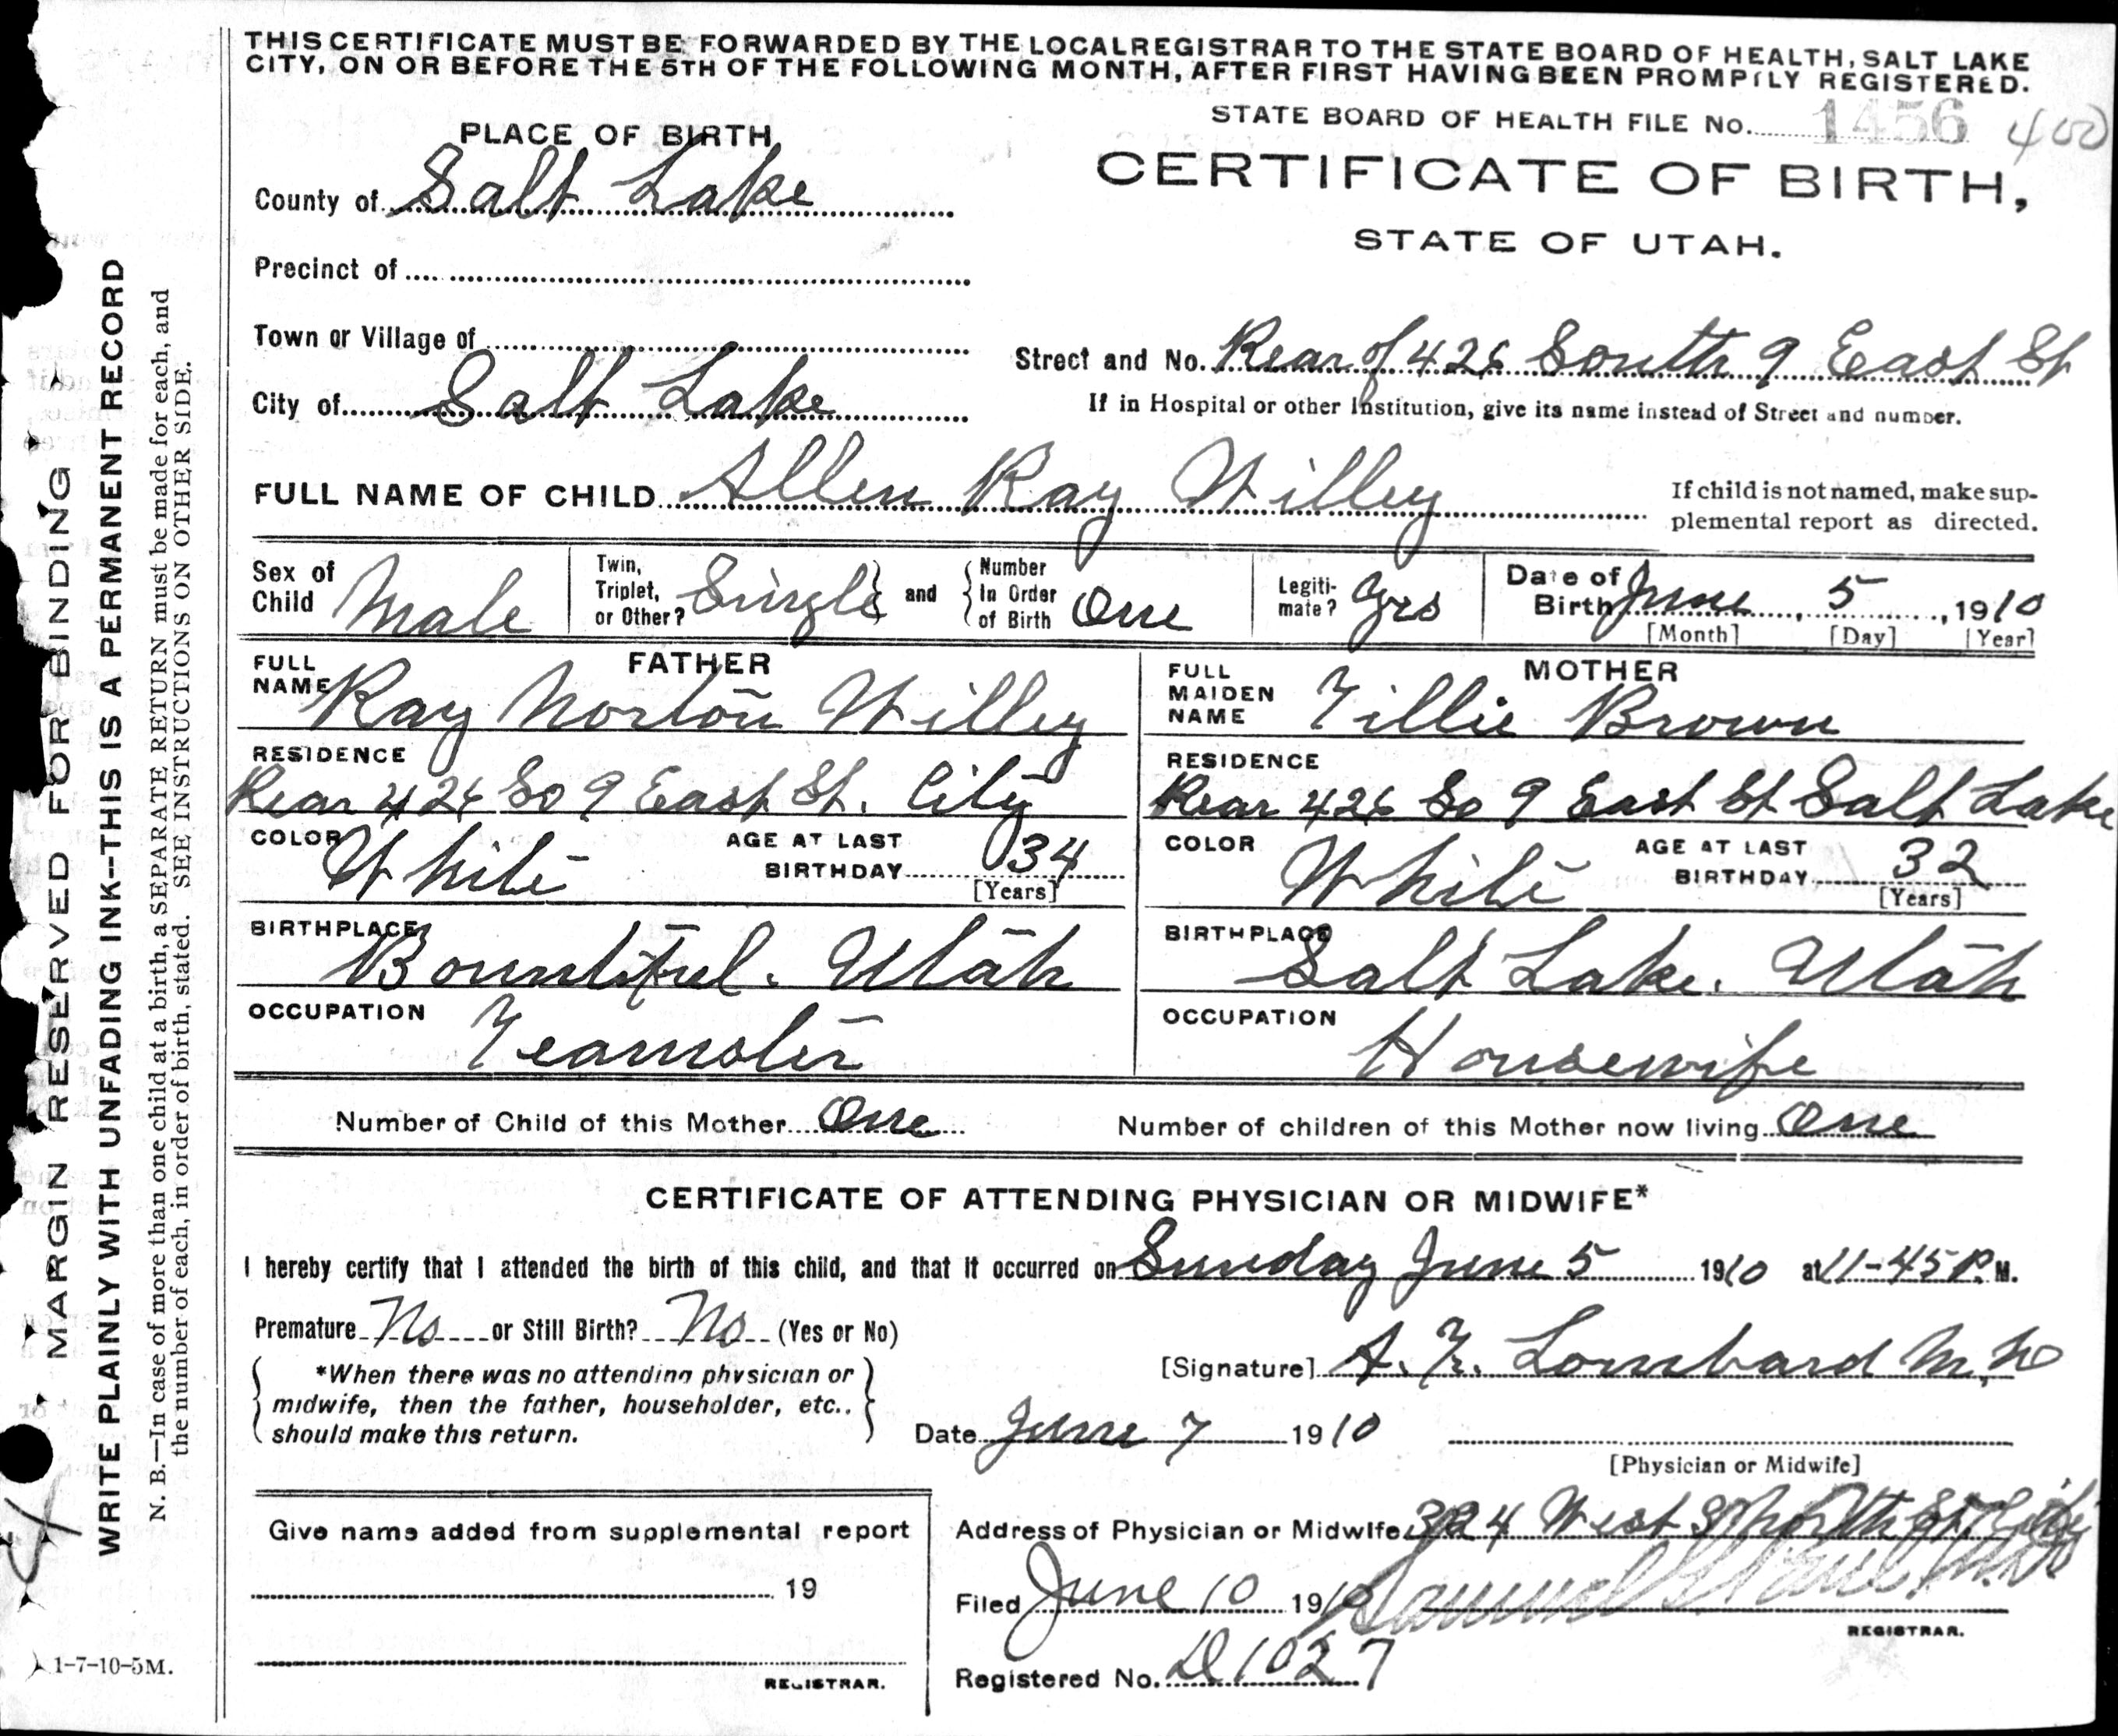 THIS CERTIFICATE MUST BE FORWARDED BY THE LOCAL REGISTRAR TO THE STATE BOARD OF HEALTH, SALT LAKE
CITY, ON OR BEFORE THE 5TH OF THE FOLLOWING MONTH, AFTER FIRST HAVING BEEN PROMPTLY REGISTERED.
STATE BOARD OF HEALTH FILE No. 1456 400
PLACE OF BIRTH
CERTIFICATE OF BIRTH,
STATE OF UTAH.
County of Salt Lake
Precinct of
Town or Village of
Street and No. Rear of 426 South 9 East St
City of Salt Lake
If in Hospital or other Institution, give its name instead of Street and number.
FULL NAME OF CHILD Allen Ray Willey
If child is not named, make sup-
plemental report as directed.
Sex of Child Male
Twin, Triplet, or Other? Single and Number In Order of Birth One
Legiti-mate? Yes
Date of Birth June, 5, 1910
[Month] [Day] [Year]
FATHER
FULL NAME Ray Norton Willey
RESIDENCE
Rear 426 So 9 East St. City
COLOR White AGE AT LAST BIRTHDAY 34
[Years]
BIRTHPLACE
Bountiful. Utah
OCCUPATION
Teamster
MOTHER
FULL MAIDEN NAME Tillie Brown
RESIDENCE
Rear 426 So 9 East St Salt Lake
COLOR White AGE AT LAST BIRTHDAY 32
[Years]
BIRTHPLACE
Salt Lake. Utah
OCCUPATION
Housewife
Number of Child of this Mother One Number of children of this Mother now living One
CERTIFICATE OF ATTENDING PHYSICIAN OR MIDWIFE*
I hereby certify that I attended the birth of this child, and that it occurred on Sunday June 5 1910 at 11-45 P. M.
Premature No or Still Birth? No (Yes or No)
[Signature] A. Z. Lombard M.D
*When there was no attending physician or
midwife, then the father, householder, etc.,
should make this return.
Date June 7 1910
[Physician or Midwife]
Give name added from supplemental report
19
REGISTRAR.
Address of Physician or Midwife 324 West North St City
Filed June 10 1910 Samuel G Paul M.D
REGISTRAR.
Registered No. D1027
MARGIN RESERVED FOR BINDING
WRITE PLAINLY WITH UNFADING INK--THIS IS A PERMANENT RECORD
N. B.—In case of more than one child at a birth, a SEPARATE RETURN must be made for each, and
the number of each, in order of birth, stated. SEE INSTRUCTIONS ON OTHER SIDE.
1-7-10-5M.